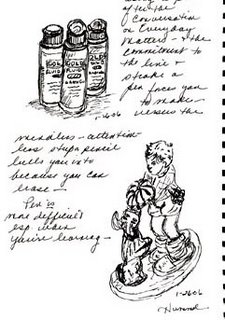 after the
Conversation
on Everyday
Matters - & the
commitment to
the line &
stroke a
pen forces you
to make -
versus the
GOLDEN
FLUID
1-26-06
mindless - attention
less stupor pencil
lulls you into
because you can
erase -
Pen is
more difficult
esp when
you're learning -
1-26-06
Hummel